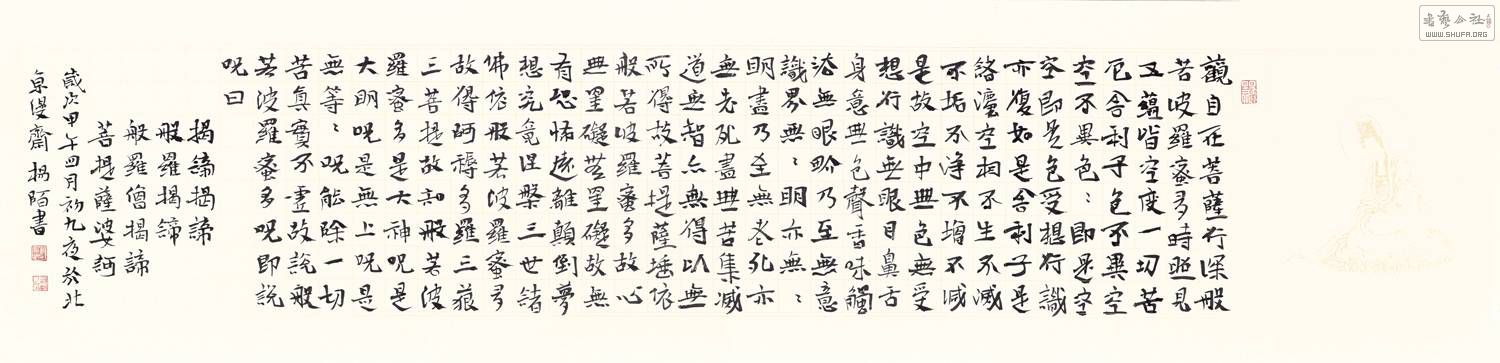 觀自在菩薩行深般
若波羅蜜多時照見
五蘊皆空度一切苦
厄舍利子色不異空
空不異色〻即是空
空即是色受想行識
亦復如是舍利子是
諸灋空相不生不滅
不垢不淨不增不減
是故空中無色無受
想行識無眼耳鼻舌
身意無色聲香味觸
法無眼界乃至無意
識界無〻明亦無〻
明盡乃至無老死亦
無老死盡無苦集滅
道無智亦無得以無
所得故菩提薩埵依
般若波羅蜜多故心
無罣礙無罣礙故無
有恐怖遠離顛倒夢
想究竟涅槃三世諸
佛依般若波羅蜜多
故得阿耨多羅三藐
三菩提故知般若波
羅蜜多是大神咒是
大明咒是無上咒是
無等〻咒能除一切
苦真實不虛故說般
若波羅蜜多咒即說
咒曰
揭諦揭諦
般羅揭諦
般羅僧揭諦
菩提薩婆訶
歲次甲午四月初九夜於北
京齋陌書
書藝公社
WWW.SHUFA.ORG